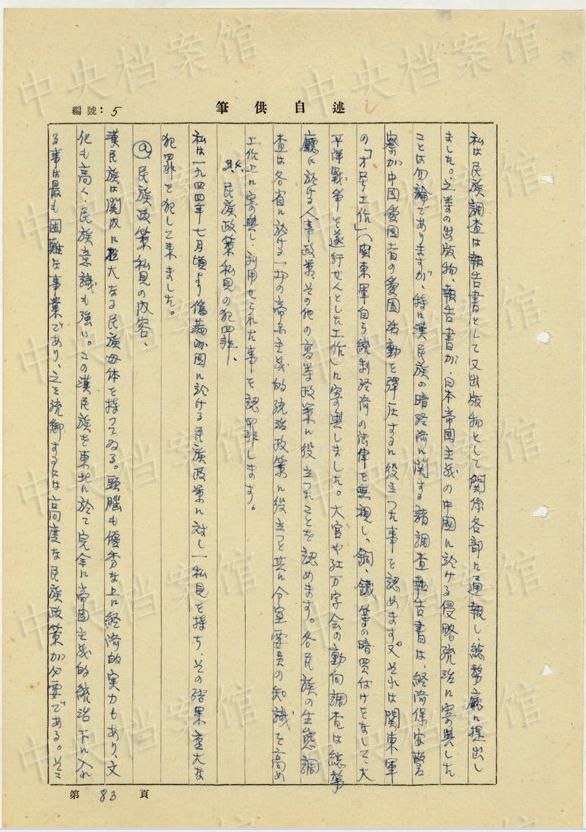 筆供自述
編號：5
私は民族調査は報告書として又出版物として関係各部に通報し、総務廳に提出し
ました。之等の出版物、報告書が、日本帝国主義の中國に於ける侵略統治に寄與した
ことは勿論でありますが、特に漢民族の暗経済に関する諸調査報告書は、経済保安警
察が中國愛国者の愛国活動を弾圧するに役立つた事を認めます。又それは関東軍
の「工作」（関東軍自ら統制経済の法律を無視し、銅、鉄等の暗買付けをなして、大
平洋戦爭を遂行せんとした工作）に寄與しました。大官や紅万字会の動向調査は総務
廳に於ける人事政策、その他の高等政策に役立つたことを認めます。各民族の生態調
査は各省に於ける一切の帝国主義的統治政策に役立つと共に分室室員の知識を高め
工作上に寄與し、利用せられた事を認罪します。
其、民族政策私見の犯罪、
私は一九四四年七月頃より偽満州国に於ける民族政策に対し一私見を持ち、その結果重大な
犯罪を犯して来ました。
(a)民族政策私見の内容、
漢民族は関内に極大なる民族母体を持つてゐる。頭脳も優秀な上に経済的実力もあり、文
化も高く、民族意識も強い。この漢民族を東北に於て完全に帝国主義的統治下に入れ
る事は最も困難な事業であり、之を統御するには高度な民族政策が必要である。そこ
第 83 頁
中央档案馆